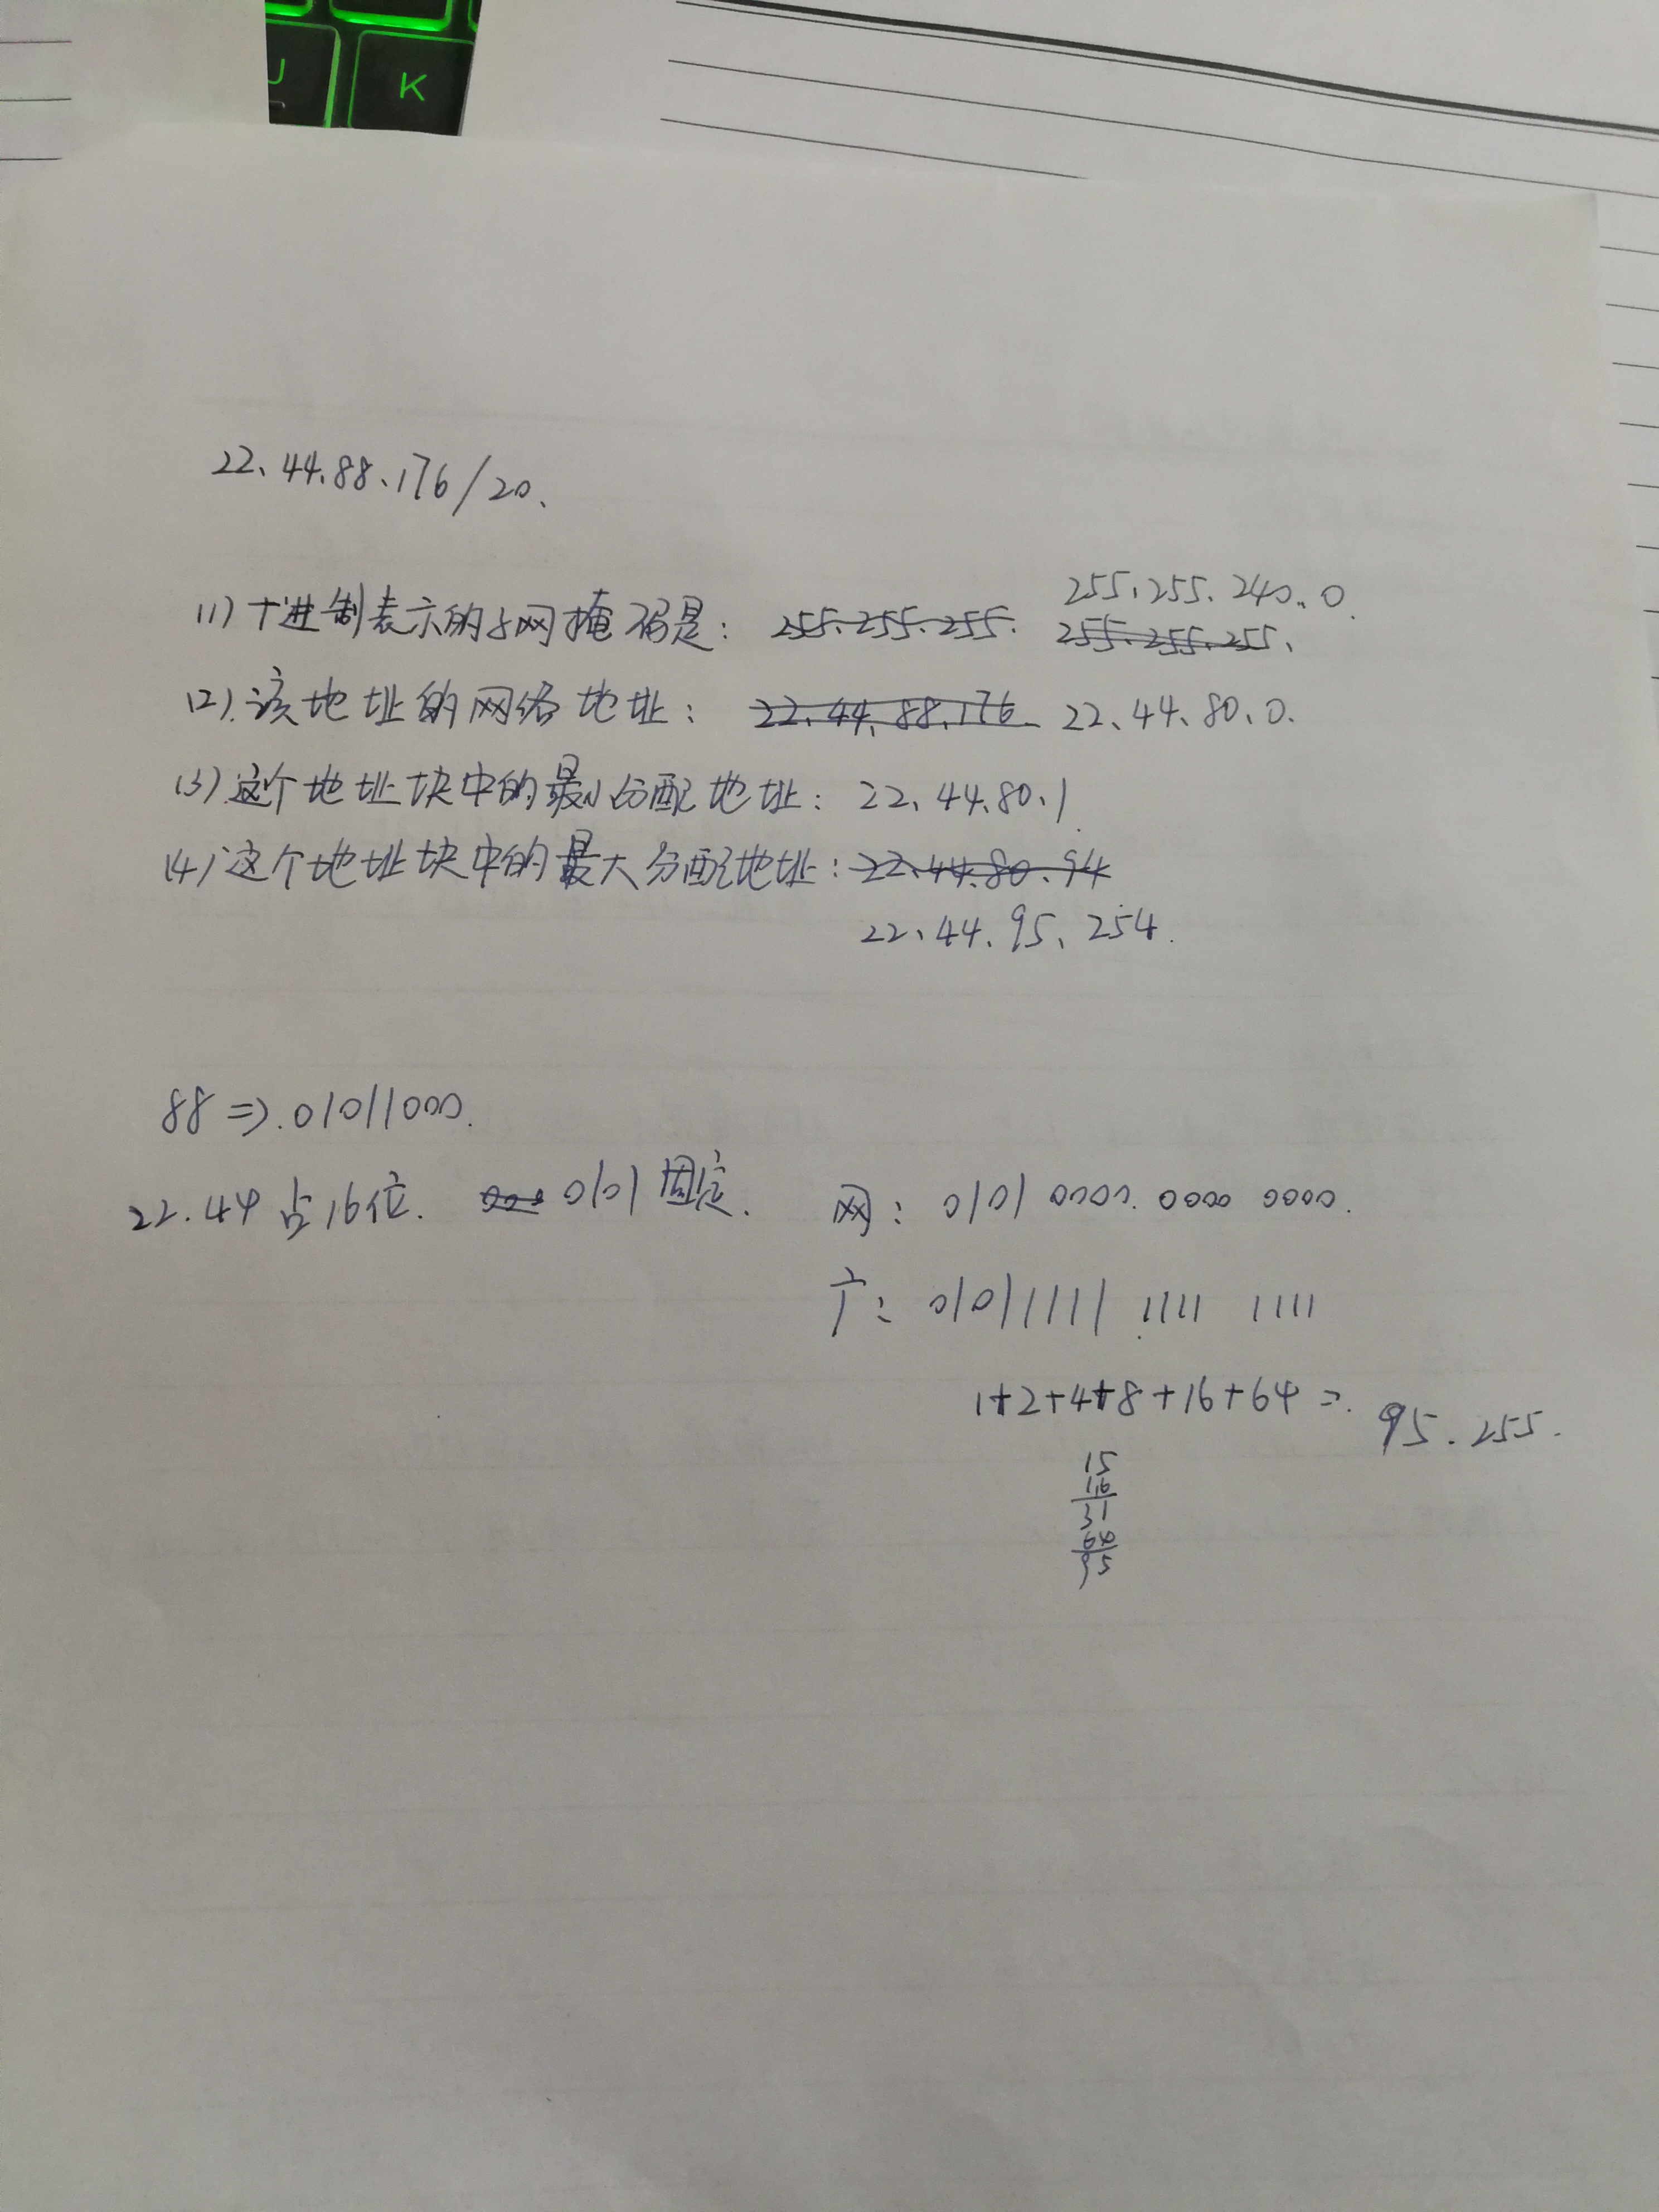 J K
22、44.88、176/20、
(1) 十进制表示的子网掩码是：255.255.255. 255.255.240.0.
255.255.255、
(2)、该地址的网络地址：22.44.88.176 22、44、80、0.
(3) 这个地址块中的最小分配地址：22、44.80、1.
(4) 这个地址块中的最大分配地址：22.44.80.94
22、44、95、254.
88 => .01011000.
22.44占16位. 0101固定. 网：0101 0000. 0000 0000.
广：01011111 .1111 1111
1+2+4+8+16+64 =. 95.255.
15
16
31
64
95